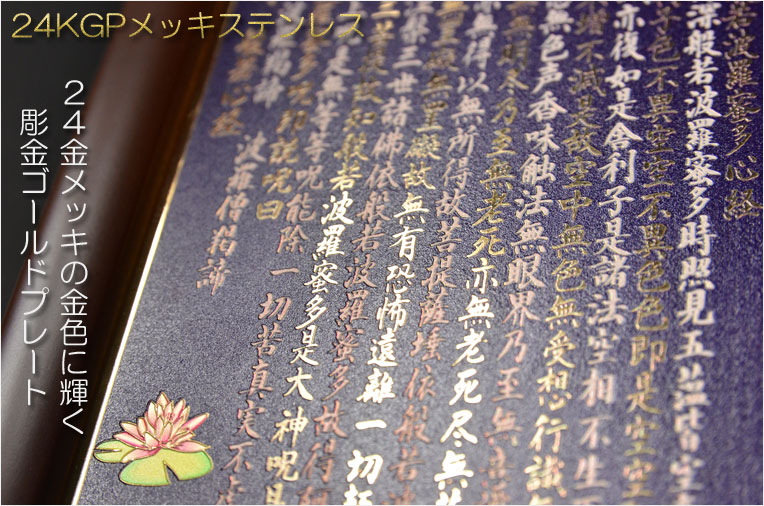 24KGPメッキステンレス
２４金メッキの金色に輝く
彫金ゴールドプレート
若波羅蜜多心経
深般若波羅蜜多時照見五蘊皆空
子色不異空空不異色色即是空空
亦復如是舎利子是諸法空相不生
増不減是故空中無色無受想行識
無色声香味触法無眼界乃至無意
無明尽乃至無老死亦無老死尽無苦
無得以無所得故菩提薩埵依般若波
無罣礙故無有恐怖遠離一切顛
三世諸佛依般若波羅蜜多故得阿
菩提故知般若波羅蜜多是大神呪是
是無等等呪能除一切苦真実不虚
多呪即説呪曰
羯諦 波羅僧羯諦
心経